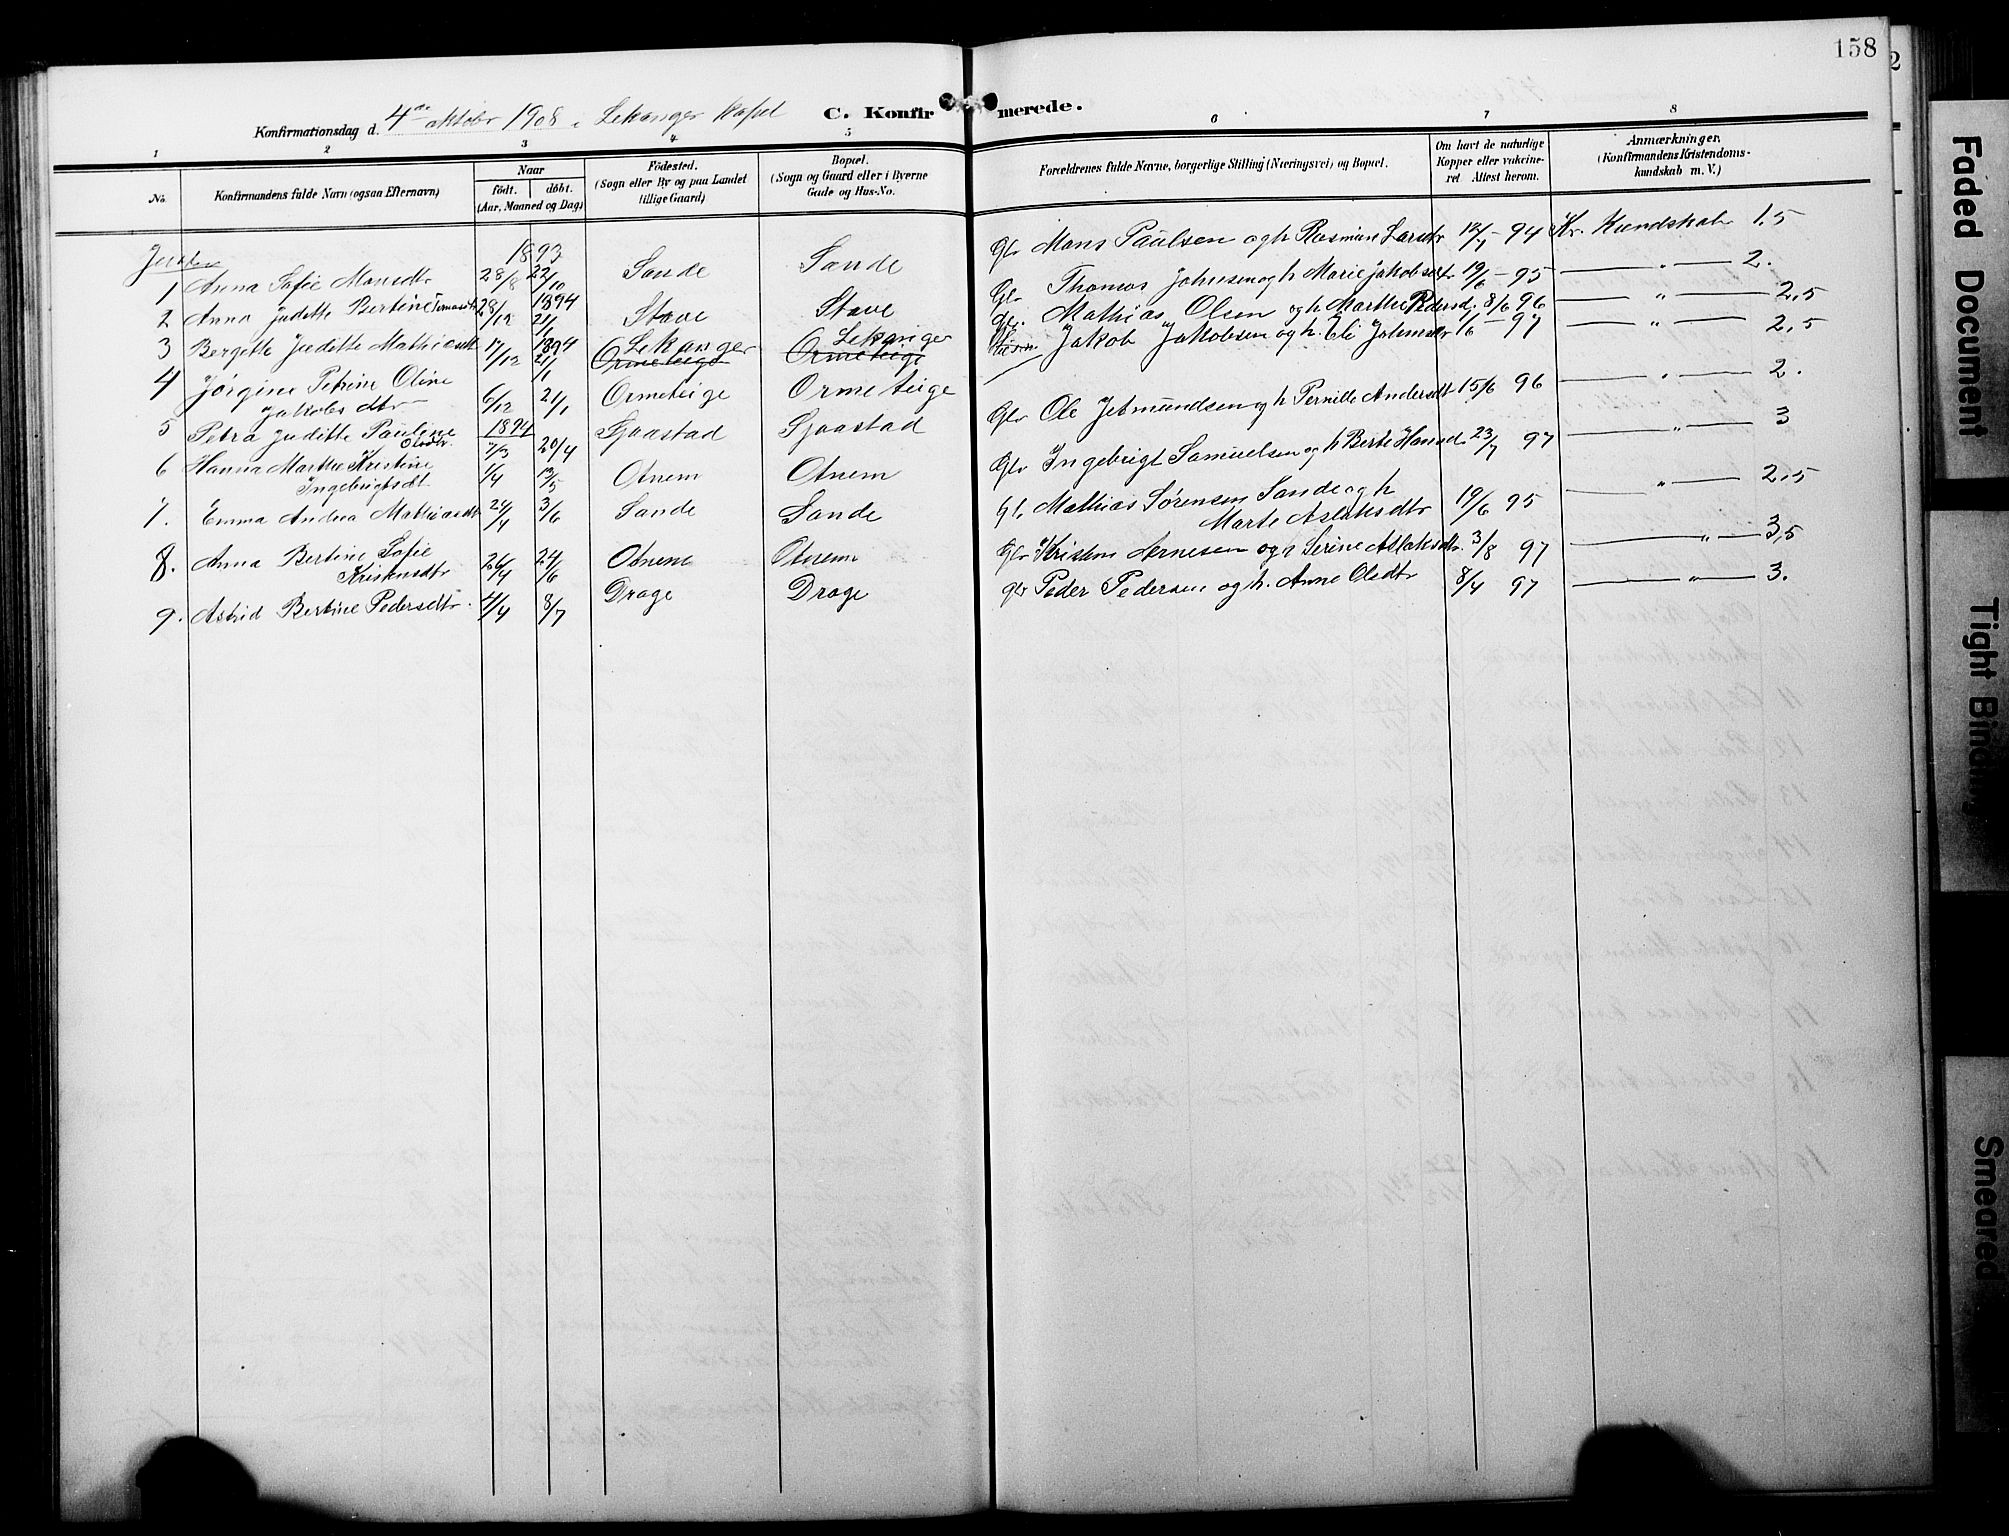 158
C. Konfirmerede.
Konfirmationsdag d. 4de oktober 1908 i Lekanger kapel
1 2 3 4 5 6 7 8
No.
Konfirmandens fulde Navn (ogsaa Efternavn)
Naar
födt. döbt.
(Aar, Maaned og Dag)
Födested.
(Sogn eller By og paa Landet
tillige Gaard)
Bopæl.
(Sogn og Gaard eller i Byerne
Gade og Hus-No.
Forældrenes fulde Navne, borgerlige Stilling (Næringsvei) og Bopæl.
Om havt de naturlige
Kopper eller vakcine-
ret Attest herom.
Anmærkninger.
(Konfirmandens Kristendoms-
kundskab m. V.)
1893
1 Anna Sofie Monsdtr 28/8 22/10 Sande Sande Gbr Mons Paulsen og h Rasmine Larsdtr 12/7 - 94 Kr. Kundskab 1.5
2 Anna Juditte Bertine Tomasdtr 28/12 1894 21/1 Stave Stave Gbr Thomas Johnsen og h Marie Jakobsdtr 19/6 - 95 — " — 2.
3 Bergitte Juditte Mathiasdt 17/12 1894 21/1 Lekanger Ormeteige Lekanger Ormeteige Gbr. Mathias Olsen og h Marthe Pedersd. 8/6 96 — " — 2,5
4 Jörgine Petrine Oline
Jakobsdtr 6/12 21/1 Ormeteige Ormeteige Jakob Jakobsen og h. Eli Johnsdtr 1/6 - 97 — " — 2,5
5 Petra Juditte Pauline
Olsdtr. 1894 7/3 20/4 Sjaastad Sjaastad Gbr Ole Jetmundsen og h Pernille Andersdt 15/6 96 — " — 2.
6 Hanna Marthe Kristine
Ingebrigtsdt 1/4 13/5 Otnem Otnem Gbr Ingebrigt Samuelsen og h Berte Hansd. 23/7 97 — " — 3
7. Emma Andrea Mathiasdt 24/4 3/6 Sande Sande Gbr Mathias Sörensen Sande og h
Marte Aslaksdtr 19/6 95 — " — 2.5
8. Anna Bertine Sofie
Kristensdtr 26/4 24/6 Otnem Otnem Gbr Kristen Arnesen og h Serine Aslaksdtr. 3/8 97 — " — 3,5
9. Astrid Bertine Pedersdtr. 4/4 8/7 Drage Drage gbr Peder Pedersen og h. Anne Olsdtr 8/4 97 — " — 3.
Faded Document
Tight Binding
Smeared